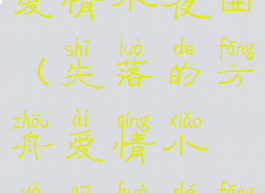 爱情小夜曲
shī luò de fāng
（失落的方
zhōu ài qíng xiǎo
舟爱情小